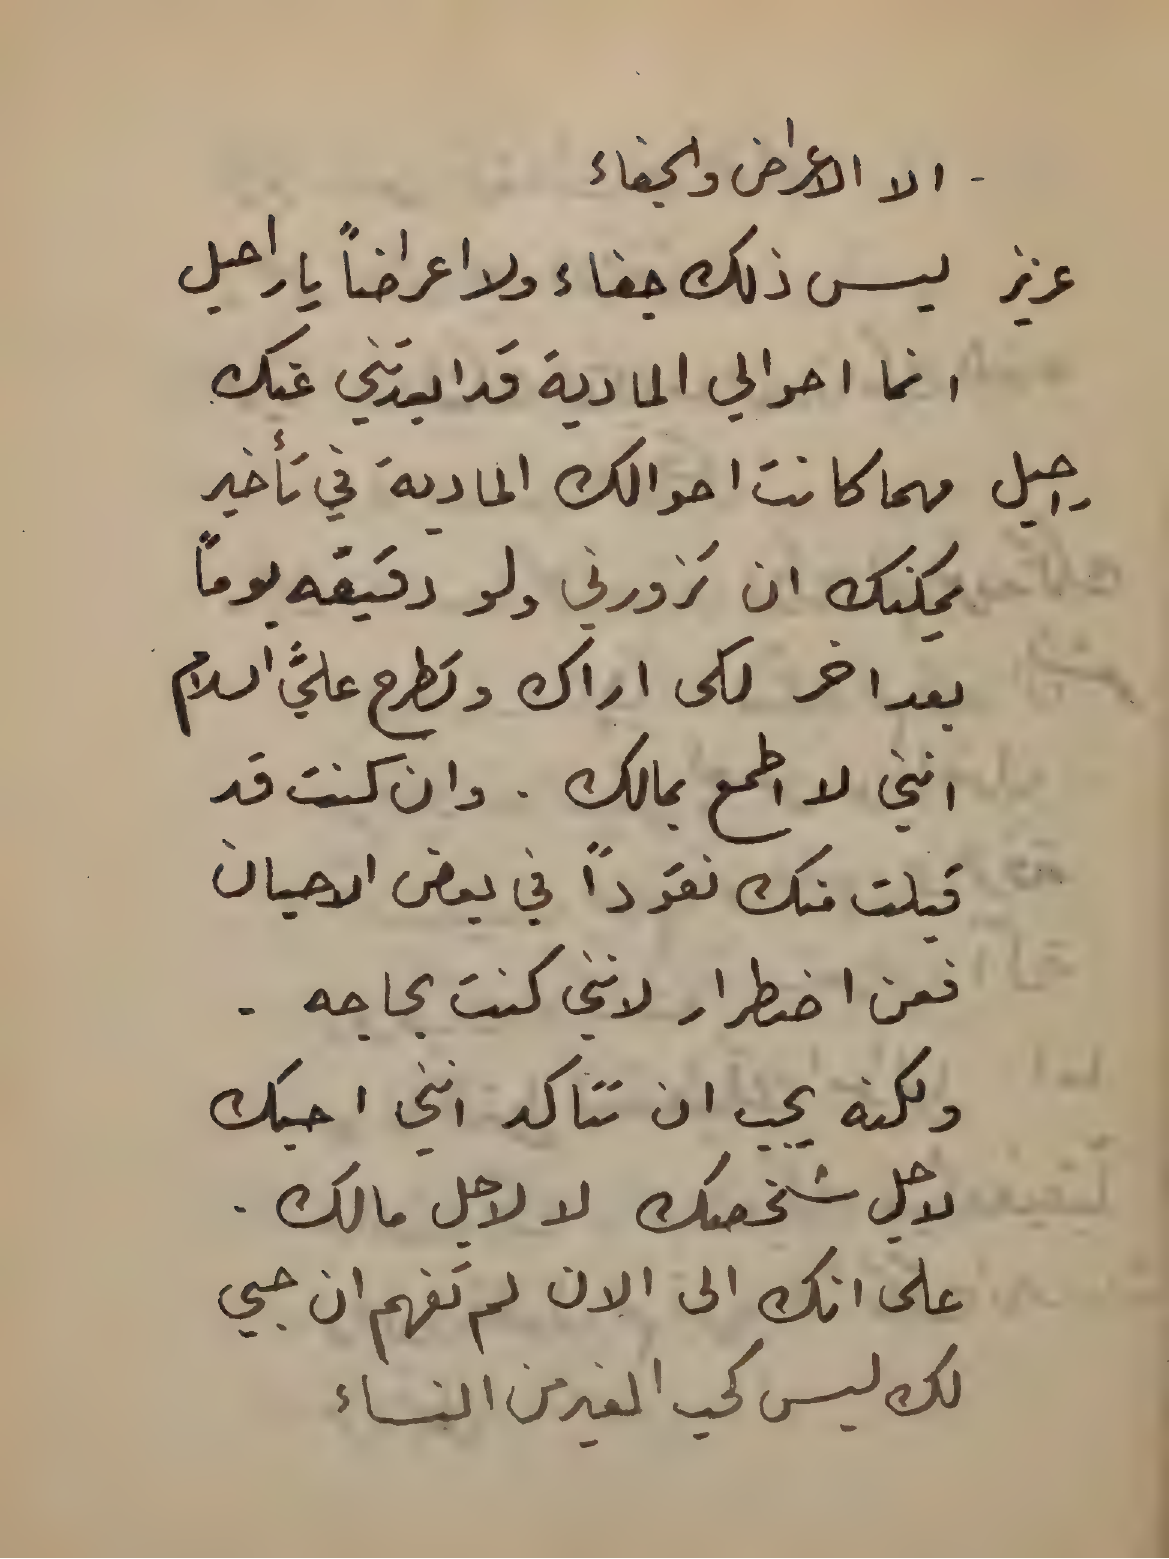 - الا الاعراض والجفاء
عزيز ليس ذلك جفاء ولا اعراضاً يا راحيل
انما احوالي المادية قد ابعدتني عنك
راحيل مهما كانت احوالك المادية في تأخير
يمكنك ان تزورني ولو دقيقه يوماً
بعد اخر لكى اراك وتطرح عليَّ السلام
انني لا اطمع بمالك . وان كنت قد
قبلت منك نقوداً في بعض الاحيان
فعن اضطرار لانني كنت بحاجه .
ولكنه يجب ان تتاكد انني احبك
لاجل شخصك لا لاجل مالك .
على انك الى الان لم تفهم ان حبي
لك ليس كحب الغير من النساء